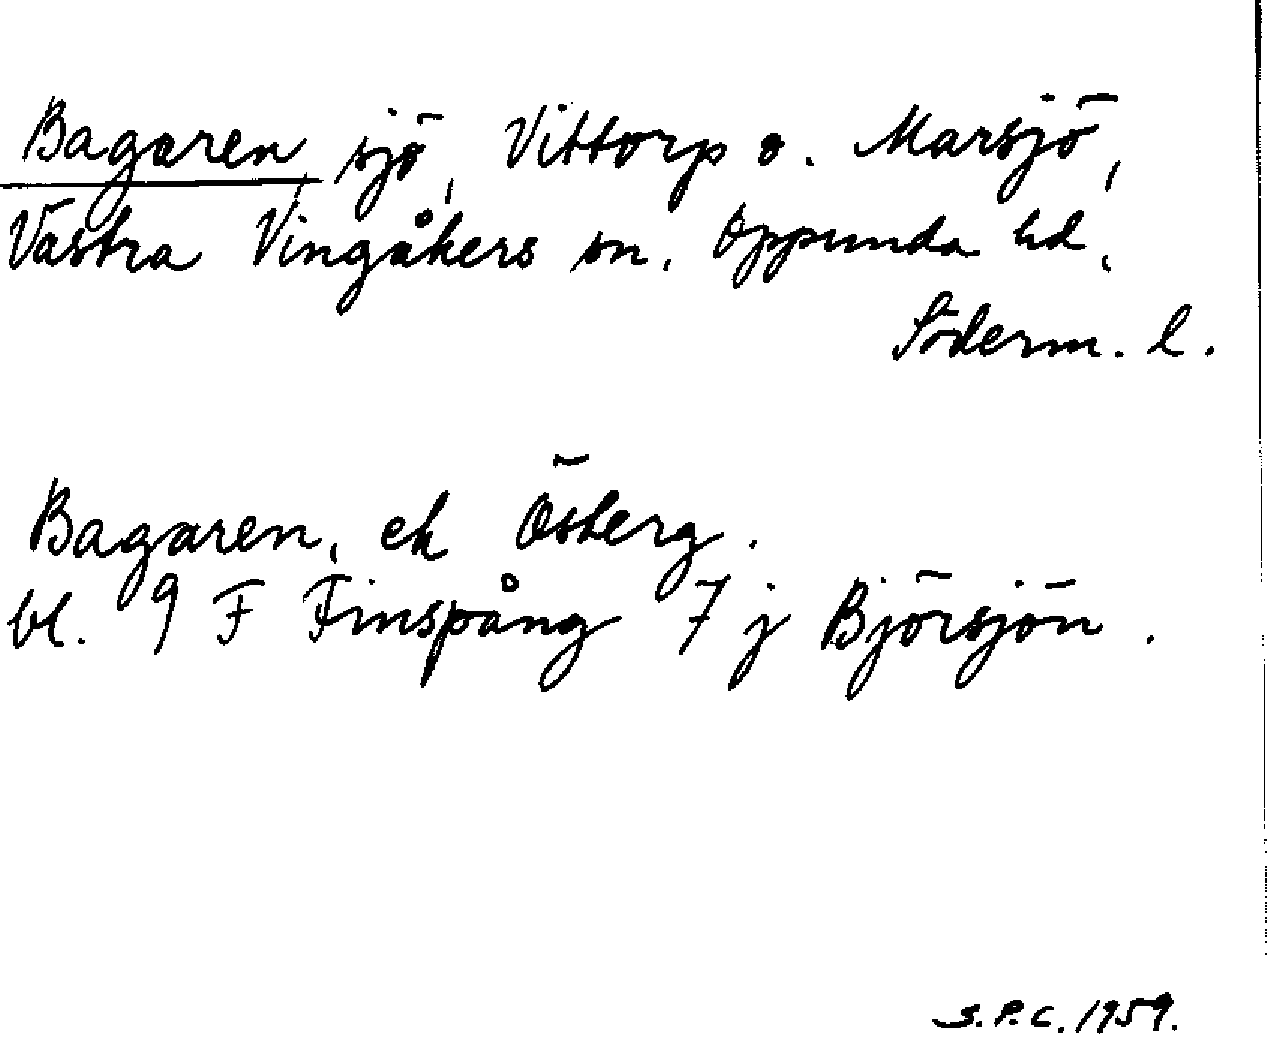 Bagaren sjö, Vittorp o. Marsjö,
Västra Vingåkers sn, Oppunda hd,
Söderm. l.
Bagaren, ek Österg.
bl. 9 F Finspång 7 j Björsjön.
S.P.C. 1959.